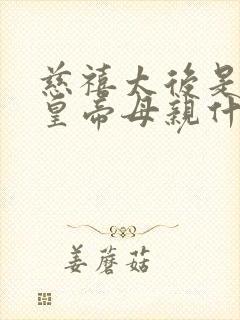 慈禧太後是
皇帝母親什
姜蘑菇